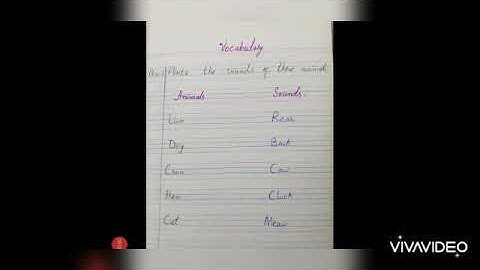 Vocabulary
Write the sounds of these animals
Animals Sounds.
Lion Roar
Dog Bark
Crow Caw
Hen Cluck
Cat. Meow
VIVAVIDEO